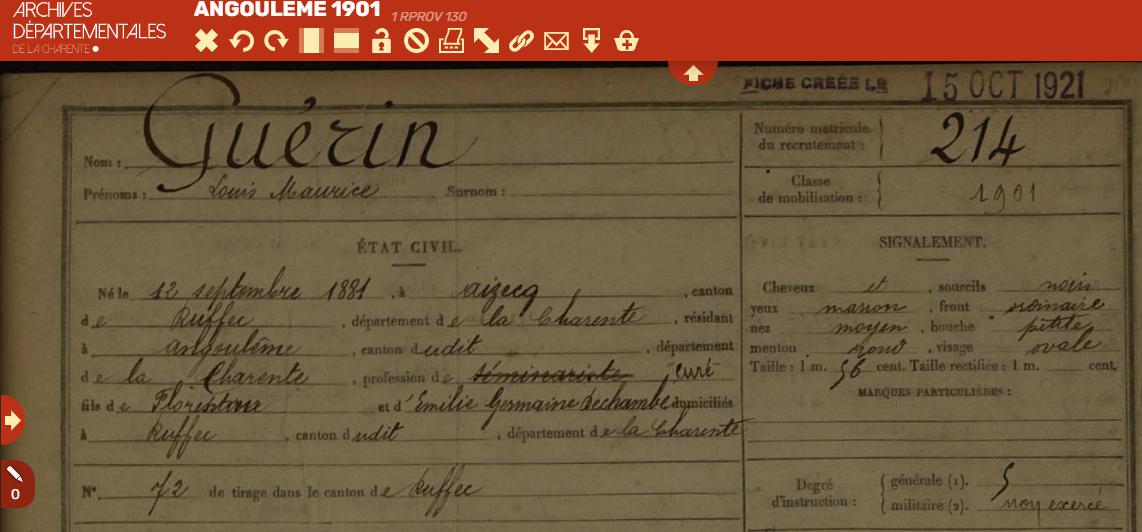 ARCHIVES
DÉPARTEMENTALES
DE LA CHARENTE
ANGOULEME 1901 1 RPROV 130
FICHE CRÉÉE LE 15 OCT 1921
Nom : Guérin
Prénoms : Louis Maurice Surnom :
Numéro matricule
du recrutement : 214
Classe
de mobilisation : 1901
ÉTAT CIVIL.
Né le 12 septembre 1881, à aizecq, canton
de Ruffec, département de la Charente, résidant
à angoulême, canton dudit, département
de la Charente, profession de séminariste curé
fils de et d'Emilie Germaine Dechambe domiciliés
à Ruffec, canton dudit, département de la Charente
N° 72 de tirage dans le canton de Ruffec
SIGNALEMENT.
Cheveux et, sourcils noirs
yeux marron, front
nez moyen, bouche petite
menton rond, visage ovale
Taille : 1 m. 56 cent. Taille rectifiée : 1 m. cent.
MARQUES PARTICULIÈRES :
Degré
d'instruction :
générale (1). 5
militaire (2). non exercé
0